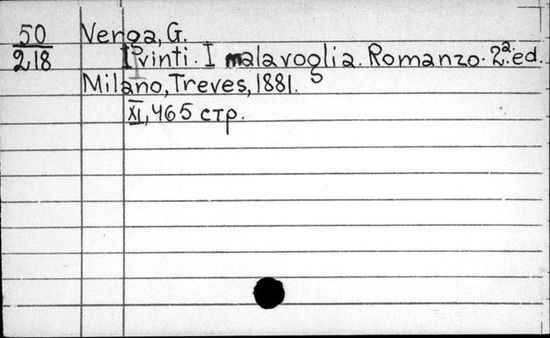 50
218
Verga, G.
I vinti. I malavoglia. Romanzo. 2ª ed.
Milano, Treves, 1881.
XI, 465 стр.